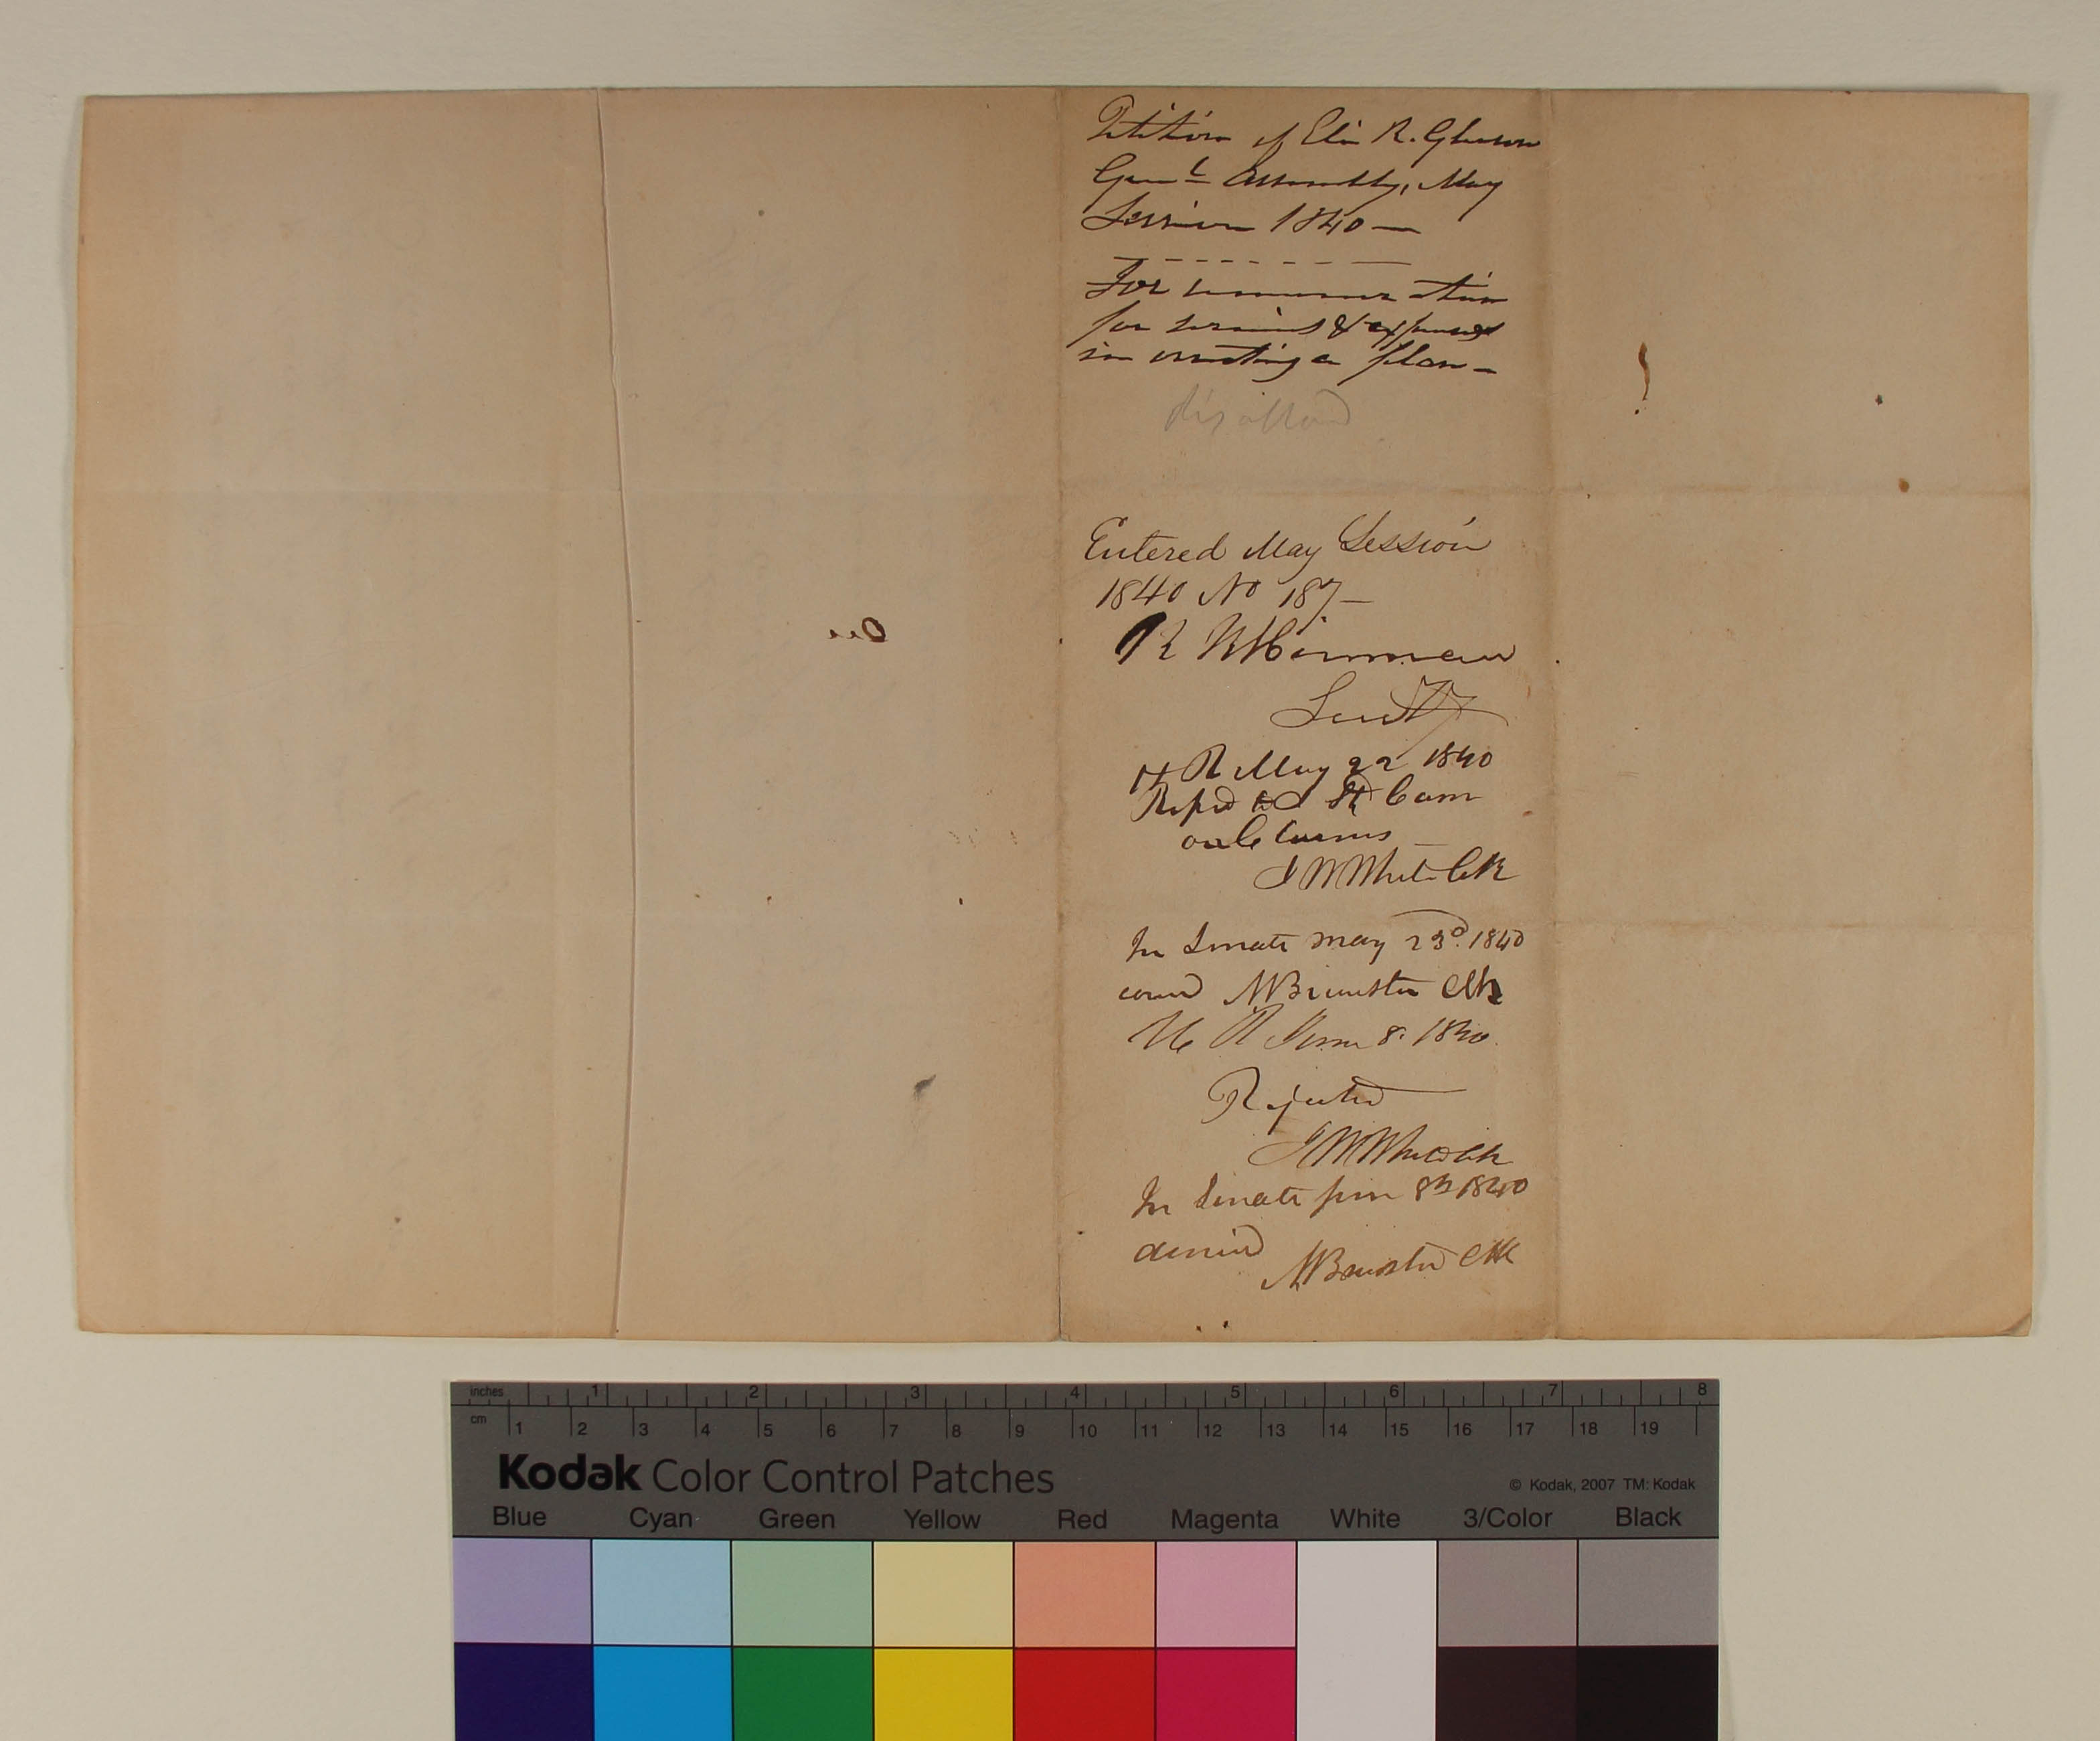 Petition of Eli R. Gleason
Genl Assembly, May
Session 1840 —
For remuneration
for services & expenses
in erecting a plan —
disallowed
Entered May Session
1840 No 187 —
R R Hinman
Secty
H R May 22 1840
Refd to Com
on Claims
J W White Clk
In Senate May 23d. 1840
concd N Brewster Clk
H R June 8. 1840
Rejected
J W White Clk
In Senate June 8th 1840
denied
N Brewster Clk
inches 1 2 3 4 5 6 7 8
cm 1 2 3 4 5 6 7 8 9 10 11 12 13 14 15 16 17 18 19
Kodak Color Control Patches
© Kodak, 2007 TM: Kodak
Blue Cyan Green Yellow Red Magenta White 3/Color Black